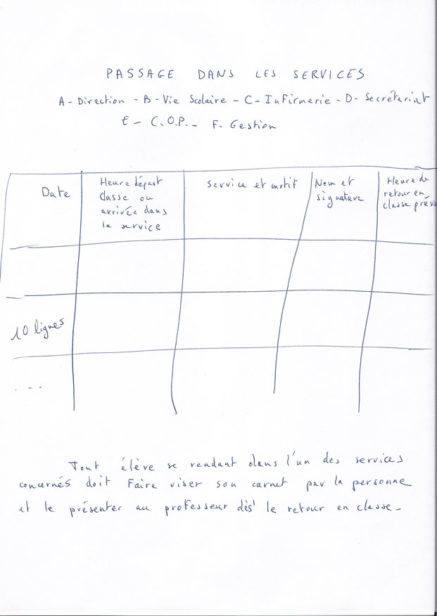 PASSAGE DANS LES SERVICES
A - Direction - B - Vie Scolaire - C - Infirmerie - D - Secrétariat
E - C.O.P. - F. Gestion
Date
Heure départ
classe ou
arrivée dans
le service
Service et motif
Nom et
signature
Heure de
retour en
classe
10 lignes
...
Tout élève se rendant dans l'un des services
concernés doit faire viser son carnet par la personne
et le présenter au professeur dès le retour en classe.